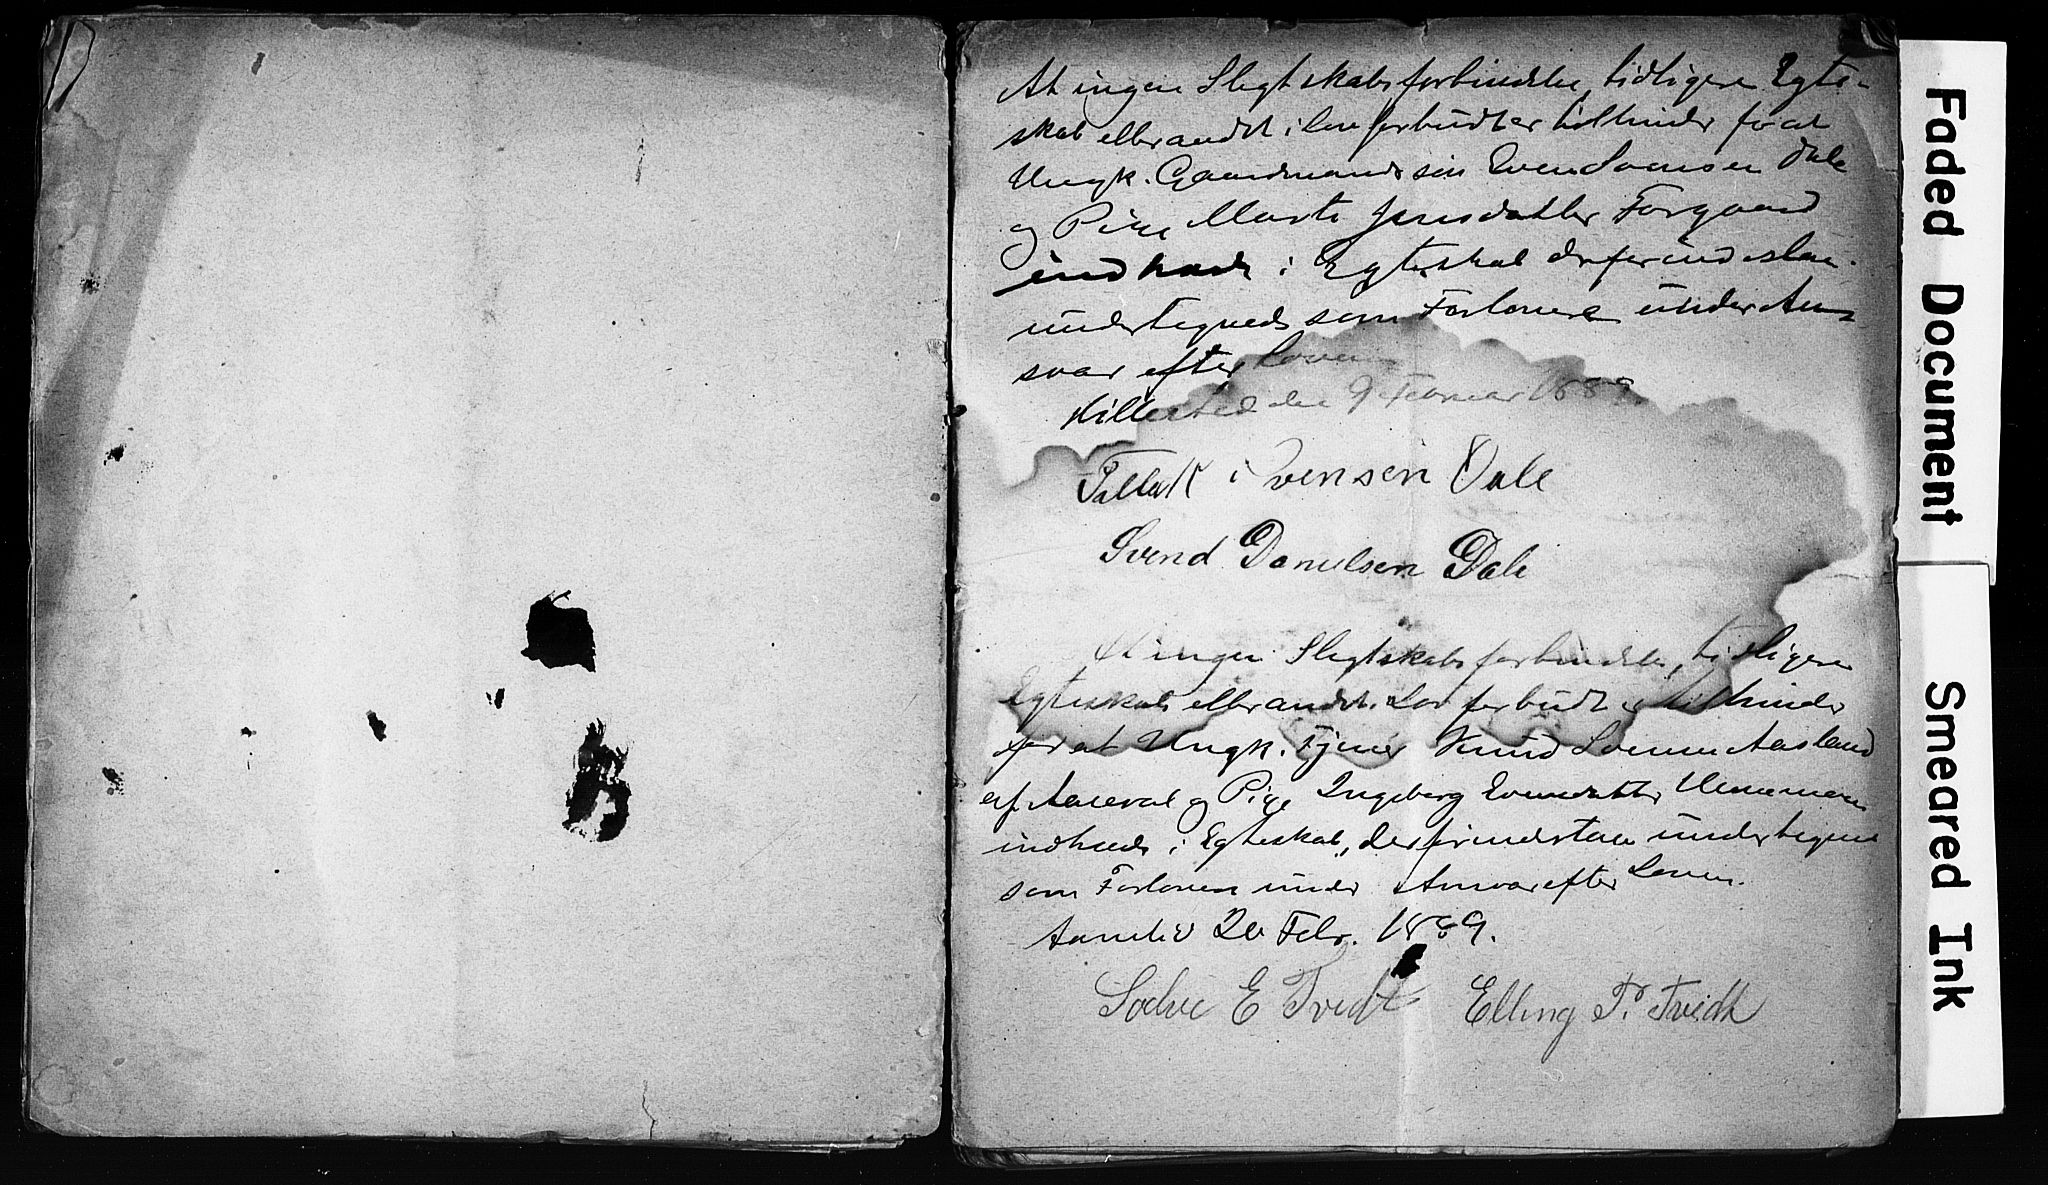 At ingen Slegtskabsforbindelse, tidligere Egte-
skab eller andet i Lov forbudt er tilhinder for at
Ungk. Gaardmands søn Even Svensen Dale
og Pige Marte Jensdatter Forgaard
indhæde i Egteskab derfor indestaar
undertegnede som Forlovere under An-
svar efter Loven
Hillestad den 9 Februar 1889.
Tallak Svensen Dale
Svend Danielsen Dale
At ingen Slegtskabsforbindelse, tidligere
Egteskab eller andet i Lov forbudt er tilhinder
for at Ungk. Tjener Knud Aasland
af Aaseral og Pige Ingeborg Evensdatter
indtræde i Egteskab, derfor indestaar undertegnede
som Forlovere under Ansvar efter Loven.
Aamli d 20 Febr. 1889.
Sælve E Tvedt Elling T. Tvedt
Faded Document
Smeared Ink